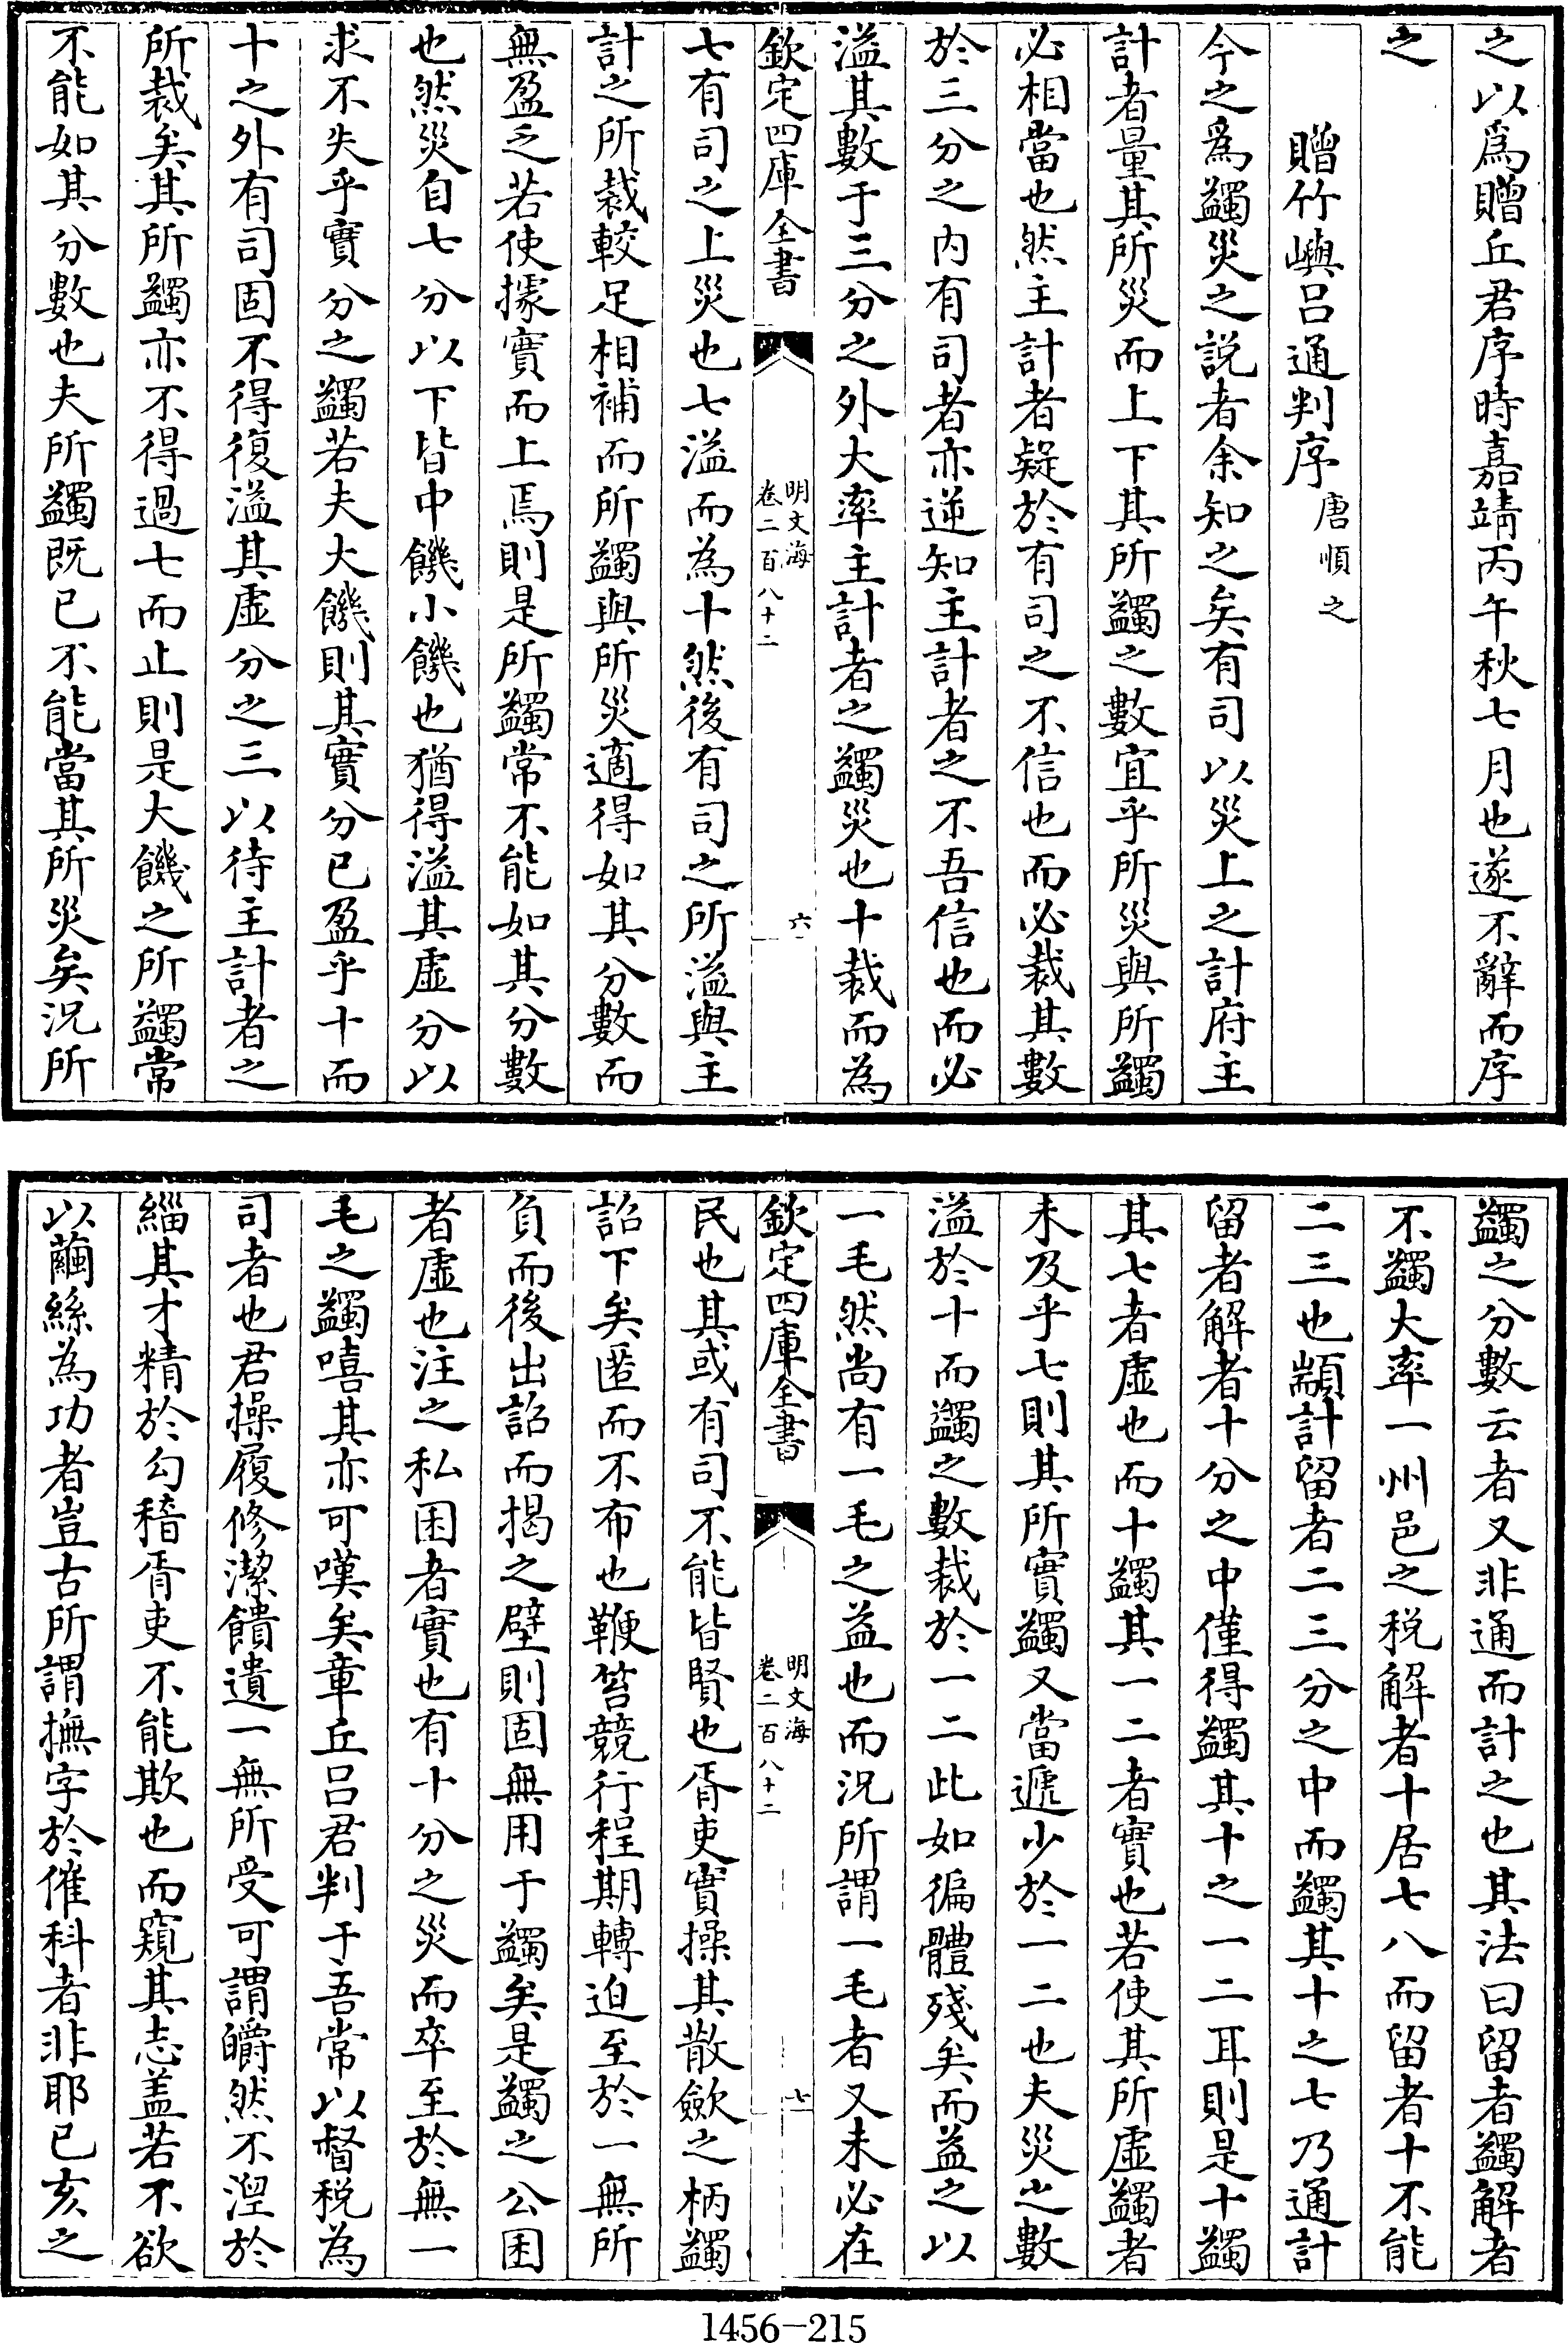 之以爲贈丘君序時嘉靖丙午秋七月也遂不辭而序
之
贈竹嶼呂通判序唐順之
今之爲蠲災之説者余知之矣有司以災上之計府主
計者量其所災而上下其所蠲之數宜乎所災與所蠲
必相當也然主計者疑於有司之不信也而必裁其數
於三分之内有司者亦逆知主計者之不吾信也而必
溢其數于三分之外大率主計者之蠲災也十裁而為
欽定四庫全書
明文海
卷二百八十二
六
七有司之上災也七溢而為十然後有司之所溢與主
計之所裁較足相補而所蠲與所災適得如其分數而
無盈乏若使據實而上焉則是所蠲常不能如其分數
也然災自七分以下皆中饑小饑也猶得溢其虛分以
求不失乎實分之蠲若夫大饑則其實分已盈乎十而
十之外有司固不得復溢其虛分之三以待主計者之
所裁矣其所蠲亦不得過七而止則是大饑之所蠲常
不能如其分數也夫所蠲既已不能當其所災矣況所
蠲之分數云者又非通而計之也其法曰留者蠲解者
不蠲大率一州邑之税解者十居七八而留者十不能
二三也顓計留者二三分之中而蠲其十之七乃通計
留者解者十分之中僅得蠲其十之一二耳則是十蠲
其七者虛也而十蠲其一二者實也若使其所虛蠲者
未及乎七則其所實蠲又當遞少於一二也夫災之數
溢於十而蠲之數裁於一二此如徧體殘矣而益之以
一毛然尚有一毛之益也而況所謂一毛者又未必在
欽定四庫全書
明文海
卷二百八十二
七
民也其或有司不能皆賢也胥吏實操其散歛之柄蠲
詔下矣匿而不布也鞭笞競行程期轉迫至於一無所
負而後出詔而揭之壁則固無用于蠲矣是蠲之公困
者虛也注之私困者實也有十分之災而卒至於無一
毛之蠲嘻其亦可嘆矣章丘呂君判于吾常以督税為
司者也君操履修潔饋遺一無所受可謂皭然不湼於
緇其才精於勾稽胥吏不能欺也而窺其志盖若不欲
以繭絲為功者豈古所謂撫字於催科者非耶已亥之
1456-215